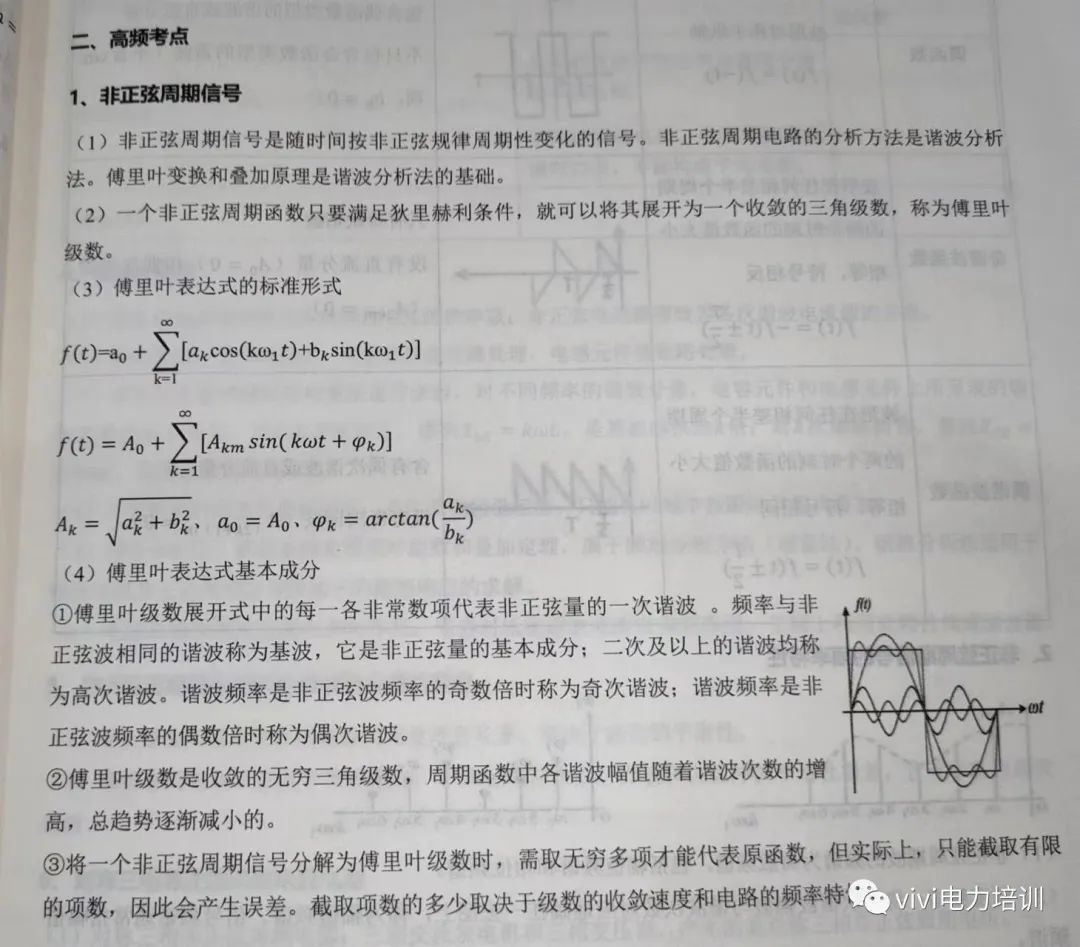 二、高频考点
1、非正弦周期信号
（1）非正弦周期信号是随时间按非正弦规律周期性变化的信号。非正弦周期电路的分析方法是谐波分析
法。傅里叶变换和叠加原理是谐波分析法的基础。
（2）一个非正弦周期函数只要满足狄里赫利条件，就可以将其展开为一个收敛的三角级数，称为傅里叶
级数。
（3）傅里叶表达式的标准形式
f(t)=a₀ + ∑_{k=1}^{∞} [aₖcos(kω₁t)+bₖsin(kω₁t)]
f(t) = A₀ + ∑_{k=1}^{∞} [Aₖₘ sin( kωt + φₖ)]
Aₖ = √(aₖ² + bₖ²)，a₀ = A₀、φₖ = arctan(aₖ/bₖ)
（4）傅里叶表达式基本成分
①傅里叶级数展开式中的每一各非常数项代表非正弦量的一次谐波 。频率与非
正弦波相同的谐波称为基波，它是非正弦量的基本成分；二次及以上的谐波均称
为高次谐波。谐波频率是非正弦波频率的奇数倍时称为奇次谐波；谐波频率是非
正弦波频率的偶数倍时称为偶次谐波。
f(t)
ωt
②傅里叶级数是收敛的无穷三角级数，周期函数中各谐波幅值随着谐波次数的增
高，总趋势逐渐减小的。
③将一个非正弦周期信号分解为傅里叶级数时，需取无穷多项才能代表原函数，但实际上，只能截取有限
的项数，因此会产生误差。截取项数的多少取决于级数的收敛速度和电路的频率特
vivi电力培训